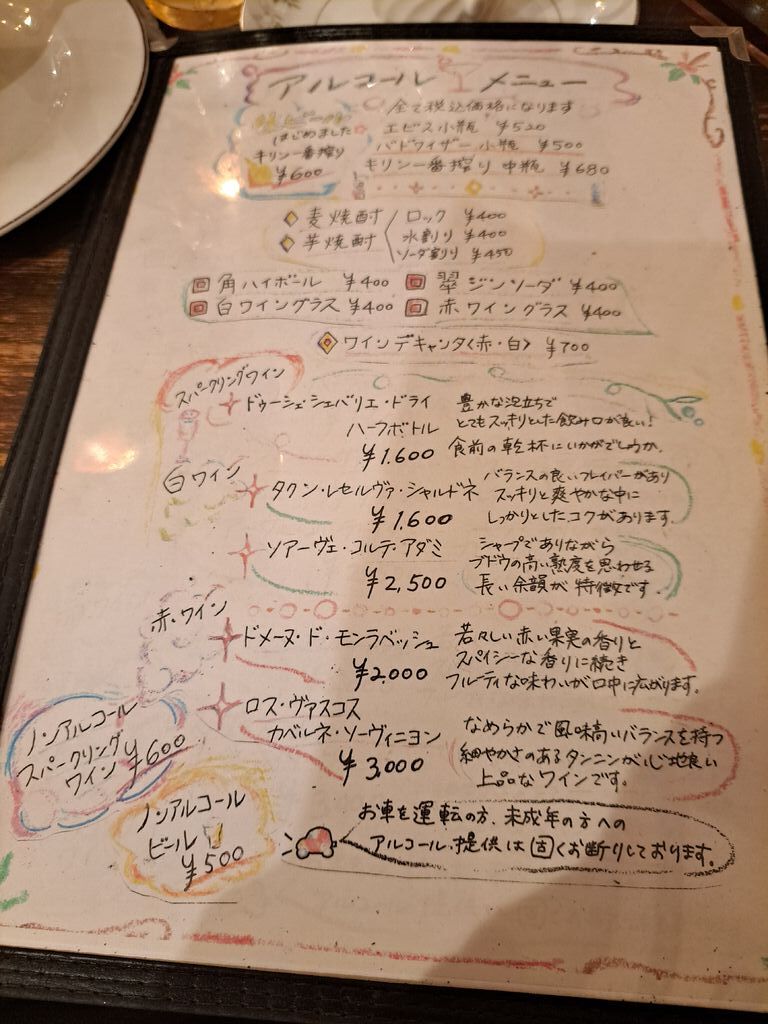 アルコール メニュー
全て税込価格になります
はじめました
キリン一番搾り
¥600
エビス小瓶 ¥520
バドワイザー小瓶 ¥500
キリン一番搾り中瓶 ¥680
麦焼酎
芋焼酎
ロック ¥400
水割り ¥400
ソーダ割り ¥450
角ハイボール ¥400
翠ジンソーダ ¥400
白ワイングラス ¥400
赤ワイングラス ¥400
ワインデキャンタ〈赤・白〉 ¥700
スパークリングワイン
ドゥーシェ・シュバリエ・ドライ
ハーフボトル
¥1.600
豊かな泡立ちで
とてもスッキリとした飲み口が良い!
食前の乾杯にいかがでしょうか。
白ワイン
タクン・レセルヴァ・シャルドネ
¥1.600
バランスの良いフレイバーがあり
スッキリと爽やかな中に
しっかりとしたコクがあります。
ソアーヴェ・コルテ・アダミ
¥2,500
シャープでありながら
ブドウの高い熟度を思わせる
長い余韻が特徴です。
赤・ワイン
ドメーヌ・ド・モンラベッシュ
¥2.000
若々しい赤い果実の香りと
スパイシーな香りに続き
フルーティな味わいが口中に広がります。
ロス・ヴァスコス
カベルネ・ソーヴィニヨン
¥3,000
なめらかで風味高いバランスを持つ
細やかさのあるタンニンが心地良い
上品なワインです。
ノンアルコール
スパークリング
ワイン ¥600
ノンアルコール
ビール
¥500
お車を運転の方、未成年の方への
アルコール提供は固くお断りしております。